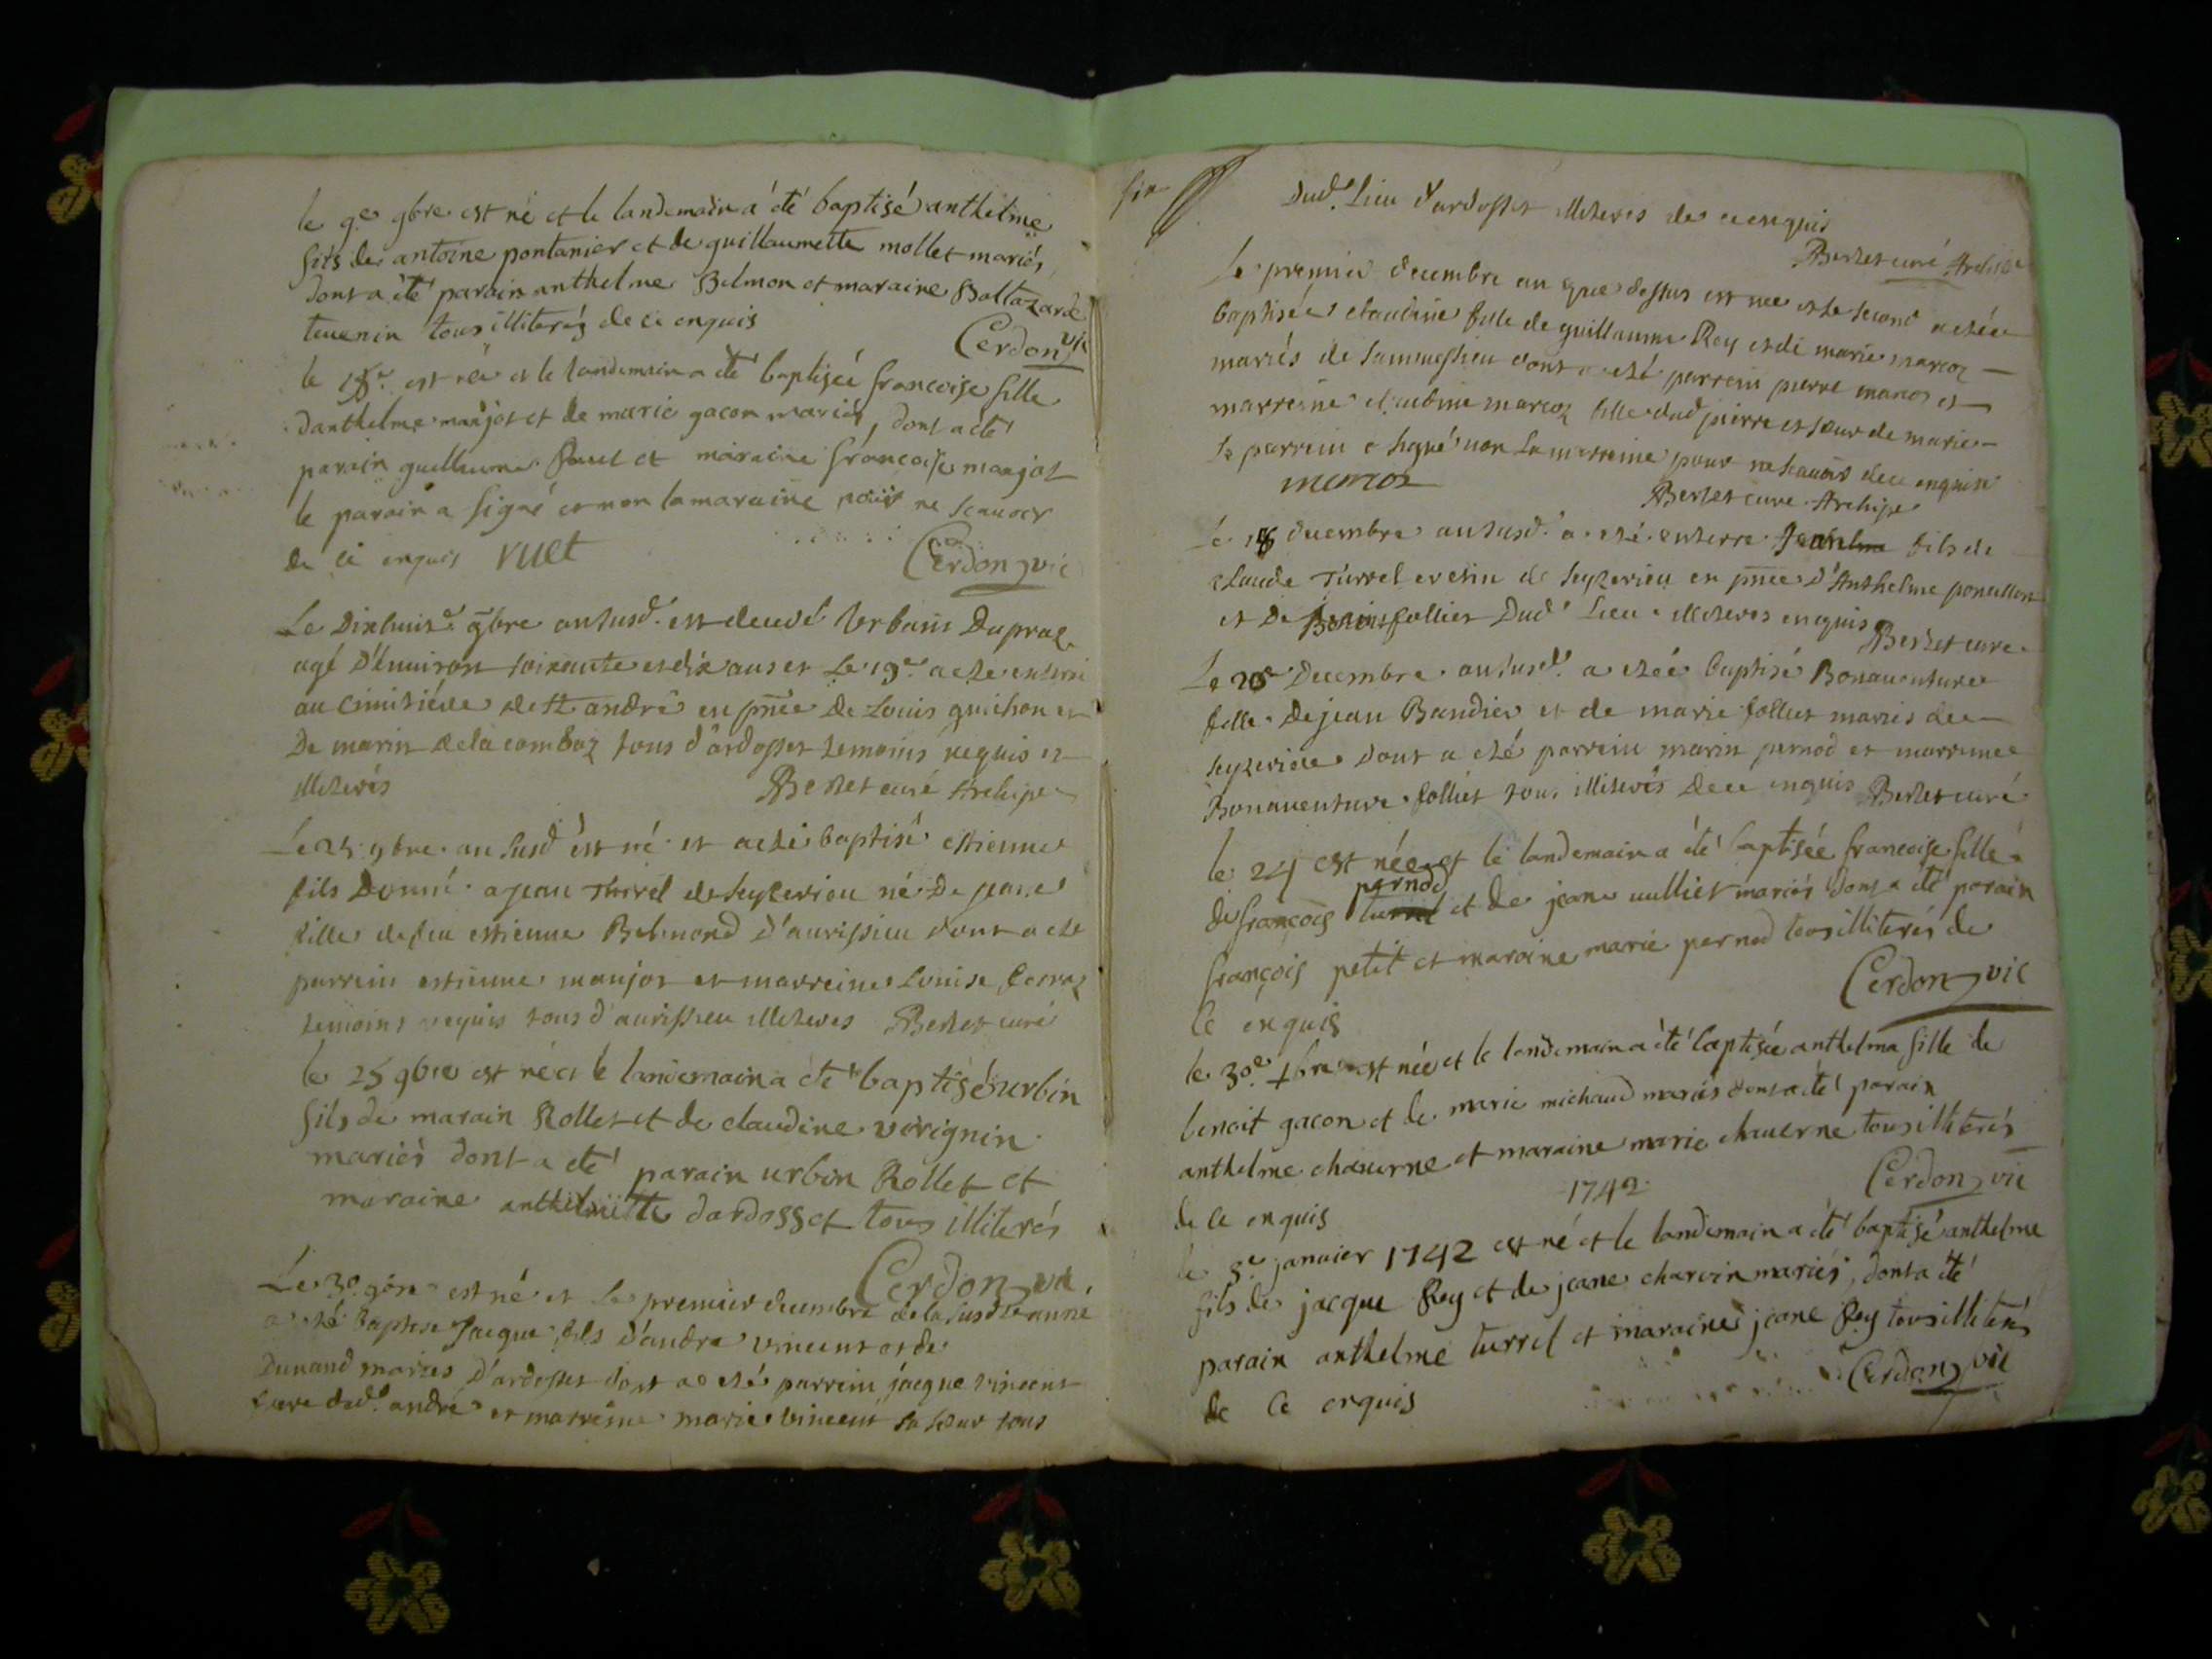 le 9e 9bre est né et le landemain a été baptisé anthelme
fils de antoine pontanier et de guillaumette mollet mariés
dont a été parain anthelme Belmon et maraine Baltazarde
tevenin tous illiterés de ce enquis
Cerdon vic
le 18e est née et le landemain a été baptisée francoise fille
danthelme manjot et de marie gacon mariés, dont a été
parain guillaume Paul et maraine francoise manjot
le parain a signé et non la maraine pour ne scauoir
de ce enquis vuet
Cerdon vic
Le Dixhuite 9bre ansusd. est decedé Urbain Dupraz
agé D'enuiron soixante et dix ans et Le 19e a ete enterré
au cimitiére de st andré en pnce De Louis guichon et
De marin dela combaz tous d'ardosset temoins requis et
illiterés
Berlet curé Archipr
Le 25 9bre an susd est né et a eté baptisé estienne
fils Donné a jean Turrel de seyzerieu né De jeane
fille de feu estienne Belmond d'aurissieu dont a ete
parrein estienne manjot et marreine Louise ferraz
temoins requis tous d'aurissieu illiteres Berlet curé
le 25 9bre est né et le landemain a été baptisé urbin
fils de marain Rollet et de claudine virignin
mariés dont a été parain urbin Rollet et
maraine anthelmette dardosset tous illiterés
Cerdon vic.
Le 30 9bre est né et Le premier decembre de la susdte année
a eté Baptisé Jacque fils d'andre vincent et de
Dunand mariés D'ardosset dont a eté parrein jacque vincent
frere dud. andré et marreine marie vincent sa soeur tous
fin
Dud. Lieu d'ardosset illiteres de ce enquis
Berlet curé Archipr
Le premier decembre an que dessus est nee et le second a etée
baptisée claudine fille de guillaume Rey et de marie marcoz
mariés de dont a eté parrein pierre marcoz et
marreine claudine marcoz fille dud pierre et soeur de marie
Le parrein a signé non La marreine pour ne scauoir de ce enquise
marcoz
Berlet cure Archipr
Le 18 decembre ansusd. a eté enterre fils de
claude Turrel de seyzerieu en pnce d'Anthelme ponullon
et De follier Dud Lieu illiteres enquis
Berlet cure
Le 20e Decembre ansusd. a etée baptisé Bonauenture
fille De jean Bandier et de marie follier mariés de
seyzerieu dont a eté parrein marin pernod et marreine
Bonauenture follier tous illiterés de ce enquis Berlet curé
le 24 est née et le landemain a été baptisée francoise fille
pernod
de françois turrel et de jeane uulliet mariés dont a été parain
françois petit et maraine marie pernod tous illiterés de
ce enquis
Cerdon vic
le 30e xbre est née et le landemain a été baptisée anthelma fille de
benoit gacon et de marie michaud mariés dont a été parain
anthelme chauerne et maraine marie chauerne tous illiterés
de ce enquis
Cerdon vic
1742
le 3e januier 1742 est né et le landemain a été baptisé anthelme
fils de jacque Rey et de jeane charvin mariés, dont a été
parain anthelme turrel et maraine jeane Rey tous illiterés
de ce enquis
Cerdon vic